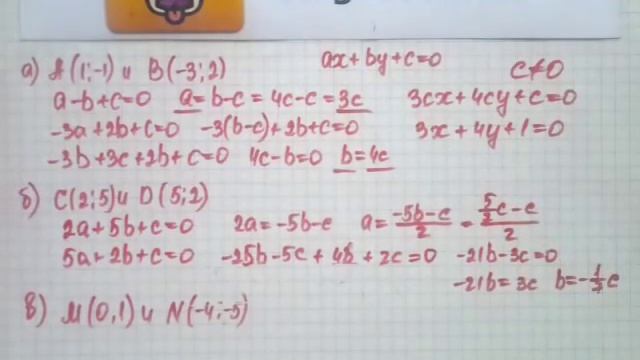 а) A(1;-1) и B(-3;2) ax+by+c=0 c≠0
a-b+c=0 a=b-c=4c-c=3c 3cx+4cy+c=0
-3a+2b+c=0 -3(b-c)+2b+c=0 3x+4y+1=0
-3b+3c+2b+c=0 4c-b=0 b=4c
б) C(2;5) и D(5;2)
2a+5b+c=0 2a=-5b-c a=\frac{-5b-c}{2}=\frac{\frac{5}{7}c-c}{2}
5a+2b+c=0 -25b-5c+4b+2c=0 -21b-3c=0
-21b=3c b=-\frac{1}{7}c
в) M(0,1) и N(-4;-5)